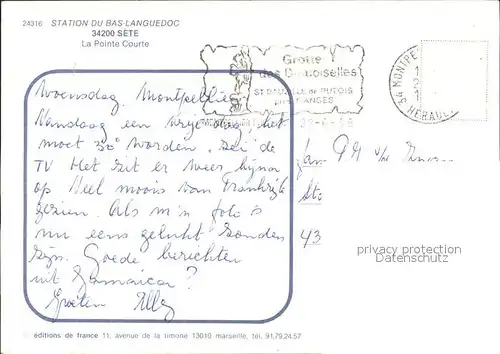 24316 STATION DU BAS-LANGUEDOC
34200 SÈTE
La Pointe Courte
Grotte
des Demoiselles
ST BAUZILLE de PUTOIS
près GANGES
34 MONTPE
HERAUL
Woensdag, Montpellier
Vandaag een vrije dag, het
moet 30° worden, zei de
TV Het zit er weer bijna
op Heel moois van Frankrijk
gezien. Als m'n foto's
nu eens gelukt zouden
zijn. Goede berichten
uit Jamaica?
Groeten
Fam
43
privacy protection
Datenschutz
éditions de france 11, avenue de la timone 13010 marseille, tél. 91,79.24.57